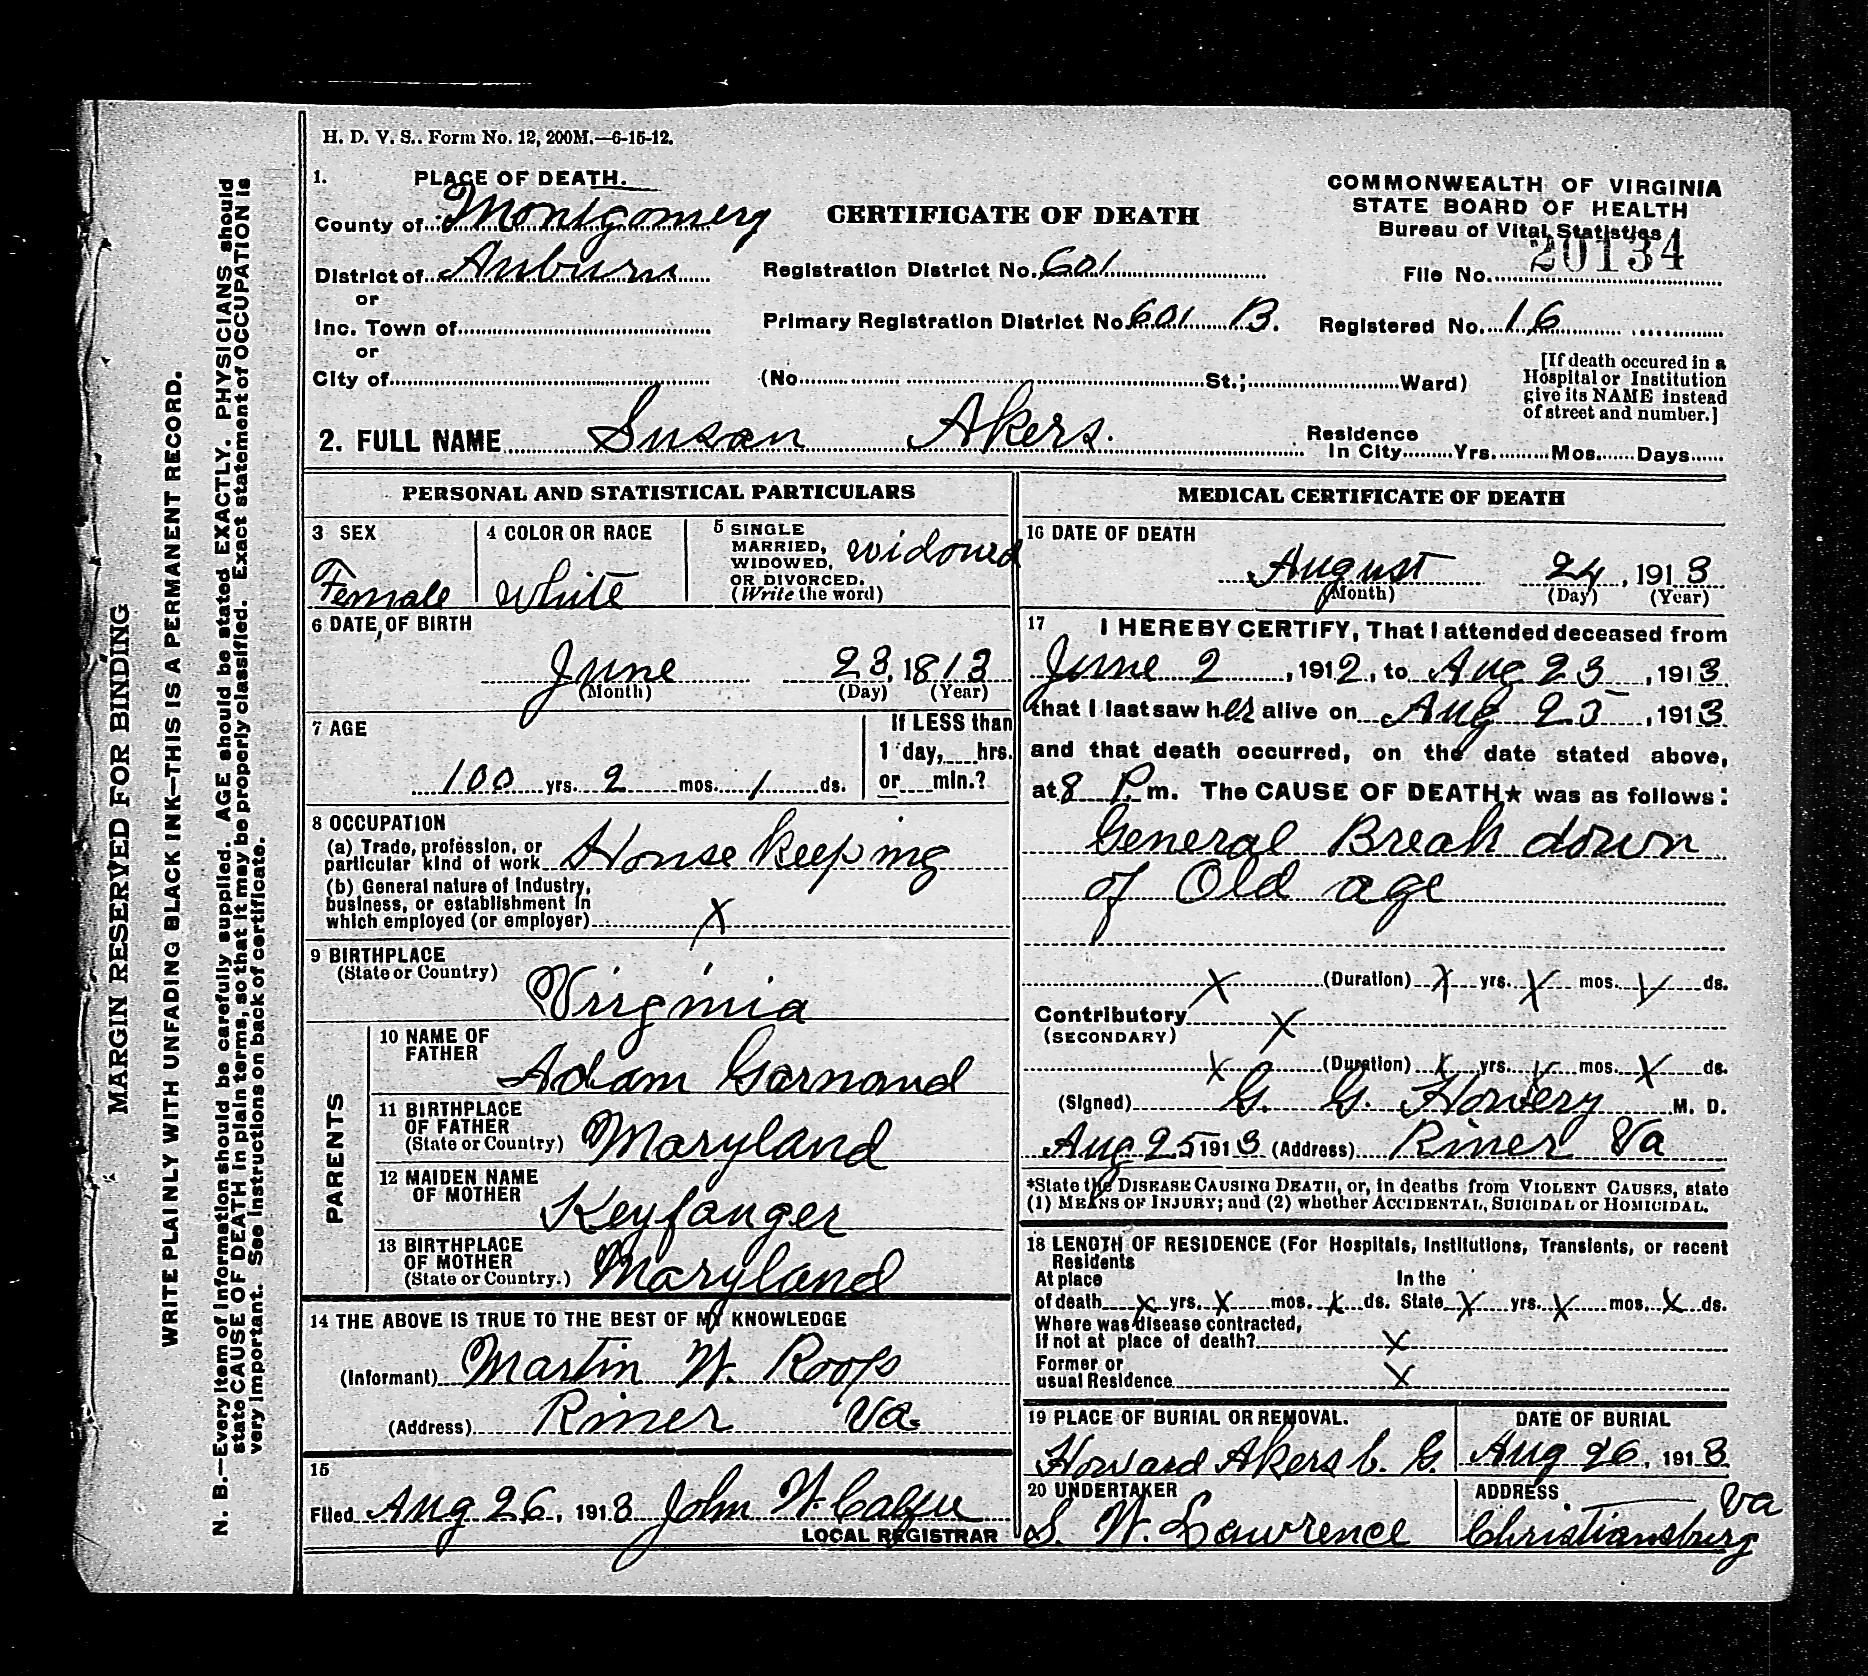 H. D. V. S.. Form No. 12, 200M.—6-15-12.
1. PLACE OF DEATH.
County of Montgomery
District of Auburn
or
Inc. Town of
or
City of
CERTIFICATE OF DEATH
Registration District No. 601
Primary Registration District No. 601 B.
(No. St.; Ward)
COMMONWEALTH OF VIRGINIA
STATE BOARD OF HEALTH
Bureau of Vital Statistics
File No. 20134
Registered No. 16
[If death occured in a
Hospital or Institution
give its NAME instead
of street and number.]
2. FULL NAME Susan Akers.
Residence
In City Yrs. Mos. Days
PERSONAL AND STATISTICAL PARTICULARS
3 SEX
Female
4 COLOR OR RACE
White
5 SINGLE
MARRIED,
WIDOWED,
OR DIVORCED.
(Write the word)
widowed
6 DATE OF BIRTH
June 23, 1813
(Month) (Day) (Year)
7 AGE
100 yrs. 2 mos. 1 ds.
If LESS than
1 day, hrs.
or min.?
8 OCCUPATION
(a) Trade, profession, or
particular kind of work House keeping
(b) General nature of Industry,
business, or establishment in
which employed (or employer) X
9 BIRTHPLACE
(State or Country)
Virginia
PARENTS
10 NAME OF
FATHER
Adam Garnand
11 BIRTHPLACE
OF FATHER
(State or Country) Maryland
12 MAIDEN NAME
OF MOTHER
Keyfanger
13 BIRTHPLACE
OF MOTHER
(State or Country.) Maryland
14 THE ABOVE IS TRUE TO THE BEST OF MY KNOWLEDGE
(Informant) Martin W. Roop
(Address) Riner Va.
15
Filed Aug 26, 1913 John W.
LOCAL REGISTRAR
MEDICAL CERTIFICATE OF DEATH
16 DATE OF DEATH
August 24, 1913
(Month) (Day) (Year)
17 I HEREBY CERTIFY, That I attended deceased from
June 2, 1912, to Aug 23, 1913
that I last saw her alive on Aug 23, 1913
and that death occurred, on the date stated above,
at 8 P. m. The CAUSE OF DEATH★ was as follows:
General Break down
of Old age
X (Duration) X yrs. X mos. X ds.
Contributory X
(SECONDARY)
X (Duration) X yrs. X mos. X ds.
(Signed) G. G. Howery M. D.
Aug 25 1913 (Address) Riner Va
*State the DISEASE CAUSING DEATH, or, in deaths from VIOLENT CAUSES, state
(1) MEANS OF INJURY; and (2) whether ACCIDENTAL, SUICIDAL or HOMICIDAL.
18 LENGTH OF RESIDENCE (For Hospitals, Institutions, Transients, or recent
Residents
At place In the
of death X yrs. X mos. X ds. State X yrs. X mos. X ds.
Where was disease contracted,
If not at place of death? X
Former or
usual Residence X
19 PLACE OF BURIAL OR REMOVAL.
Howard Akers C. G.
DATE OF BURIAL
Aug 26, 1913
20 UNDERTAKER
S. W. Lawrence
ADDRESS
Christiansburg Va
MARGIN RESERVED FOR BINDING
WRITE PLAINLY WITH UNFADING BLACK INK—THIS IS A PERMANENT RECORD.
N. B.—Every item of information should be carefully supplied. AGE should be stated EXACTLY. PHYSICIANS should
state CAUSE OF DEATH in plain terms, so that it may be properly classified. Exact statement of OCCUPATION is
very important. See instructions on back of certificate.